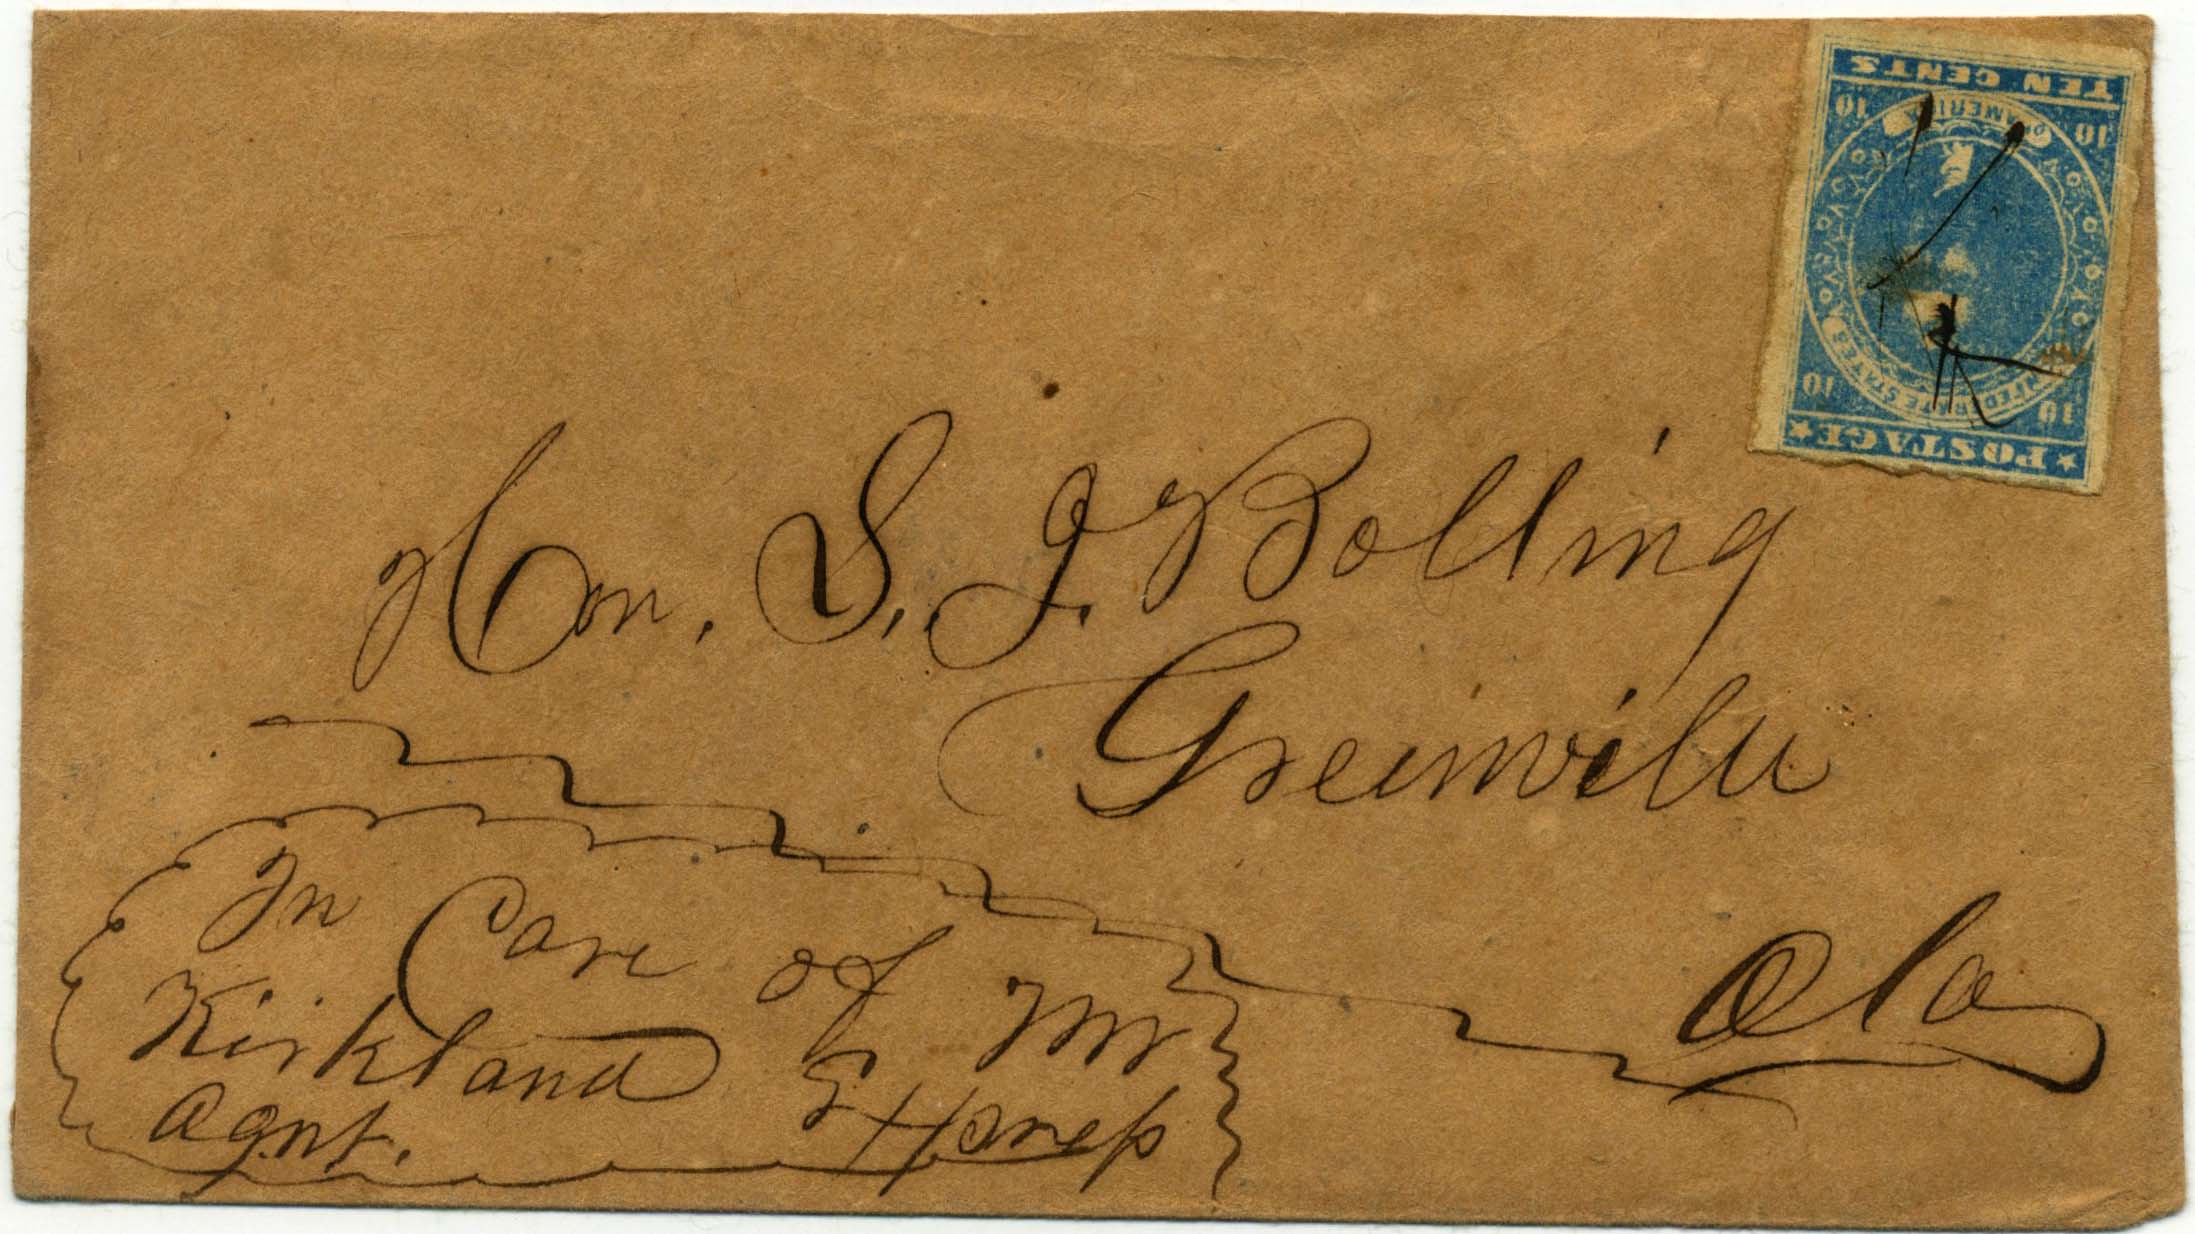 TEN CENTS
10 10
OF AMERICA
CONFEDERATE STATES
10 10
★ POSTAGE ★
Hon. S. J. Bolling
Greenville
Ala
In Care of Mr
Kirkland Express
Agnt.